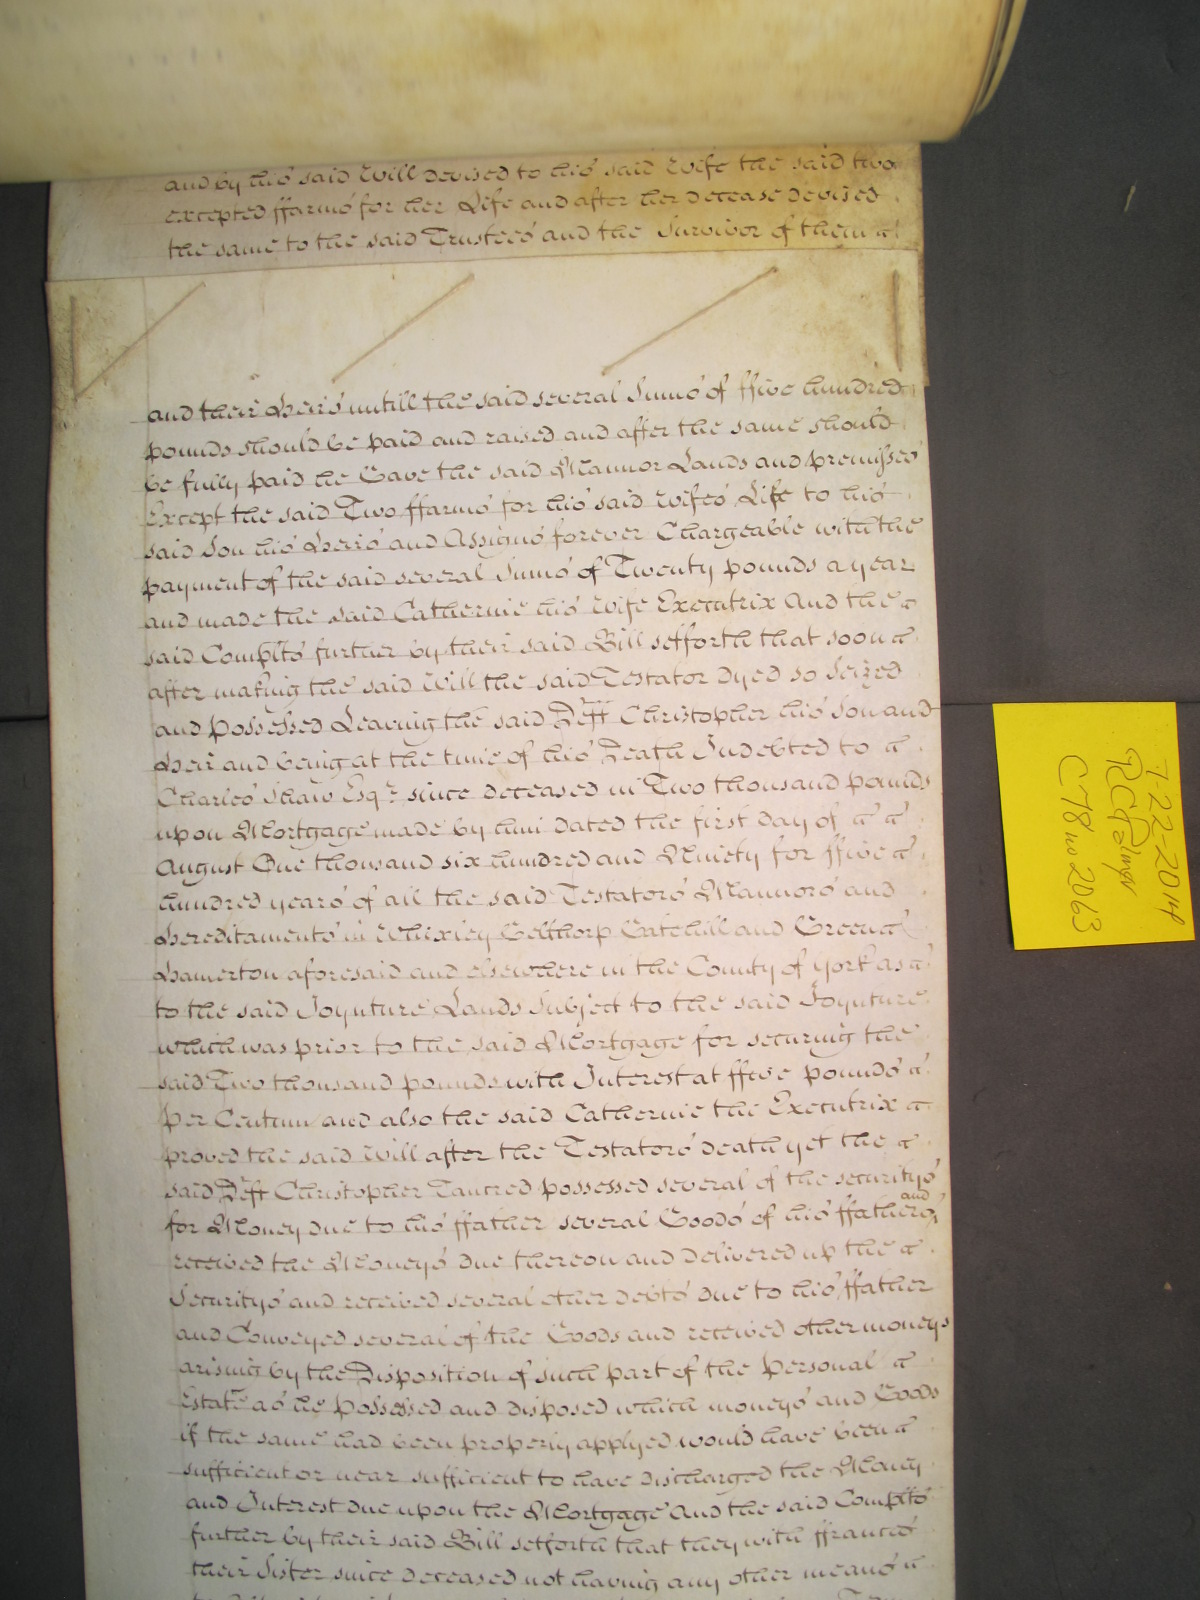 and by his said Will devised to his said Wife the said two
excepted ffarms for her Life and after her decease devised
the same to the said Trustees and the Survivor of them
and their Heirs untill the said several Sums of ffive hundred
pounds should be paid and raised and after the same should
be fully paid he Gave the said Mannor Lands and premisses
Except the said Two ffarms for his said Wifes Life to his
said Son his Heirs and Assigns forever Chargeable with the
payment of the said several Sums of Twenty pounds a year
and made the said Catherine his Wife Executrix And the
said Complts further by their said Bill setforth that soon
after making the said Will the said Testator dyed so Seized
and Possessed Leaving the said Deft Christopher his Son and
Heir and being at the time of his Death Indebted to
Charles Shaw Esqr since deceased in Two thousand pounds
upon Mortgage made by him dated the first day of
August One thousand six hundred and Ninety for ffive
hundred years of all the said Testators Mannors and
Hereditaments in Whixley Gelthorp Catehill and Green
Hamerton aforesaid and elsewhere in the County of York as
to the said Joynture Lands Subject to the said Joynture
which was prior to the said Mortgage for securing the
said Two thousand pounds with Interest at ffive pounds
per Centum and also the said Catherine the Executrix
proved the said Will after the Testators death yet the
said Deft Christopher Tancred possessed several of the securitys
for Money due to his ffather several Goods of his ffathers and
received the Moneys due thereon and delivered up the
Securitys and received several other debts due to his ffather
and Conveyed several of the Goods and received other moneys
arising by the Disposition of such part of the Personal
Estate as he Possessed and disposed which moneys and Goods
if the same had been properly applyed would have been
sufficient or near sufficient to have discharged the Money
and Interest due upon the Mortgage And the said Complts
further by their said Bill setforth that they with ffrances
their Sister since deceased not having any other means
7-22-2014
RCPalmer
C78 no 2063